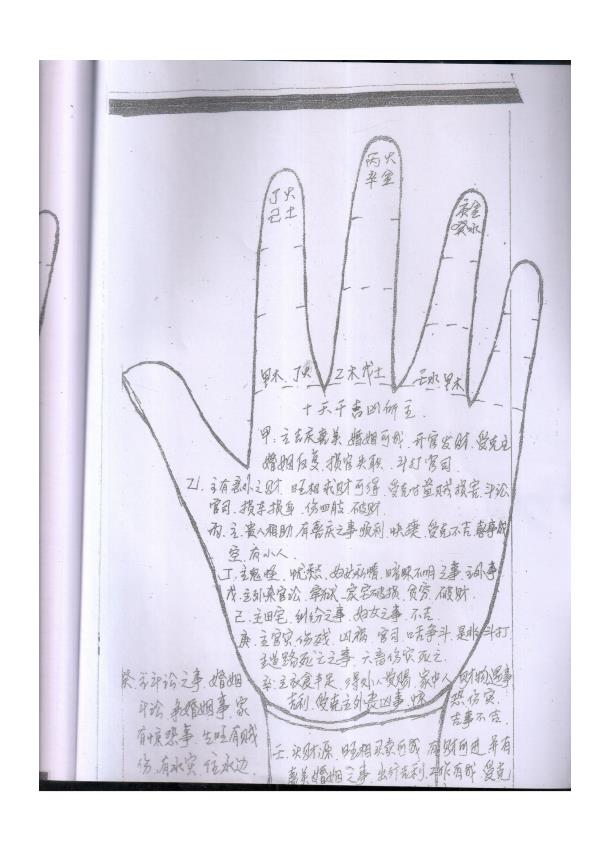 丙火
辛金
丁火
己土
庚金
癸水
甲木 丁火 乙木戊土 壬水 甲木
十天干吉凶所主
甲:主吉庆嘉美 婚姻可成 开官发财 受克主
婚姻反复 损官失职 斗打官司
乙:主有意外之财 旺相求财可得 受克付益贼损害 斗讼
官司 损车损身 伤四肢 破财
丙:主贵人相助 有喜庆之事 顺利 快捷 受克不吉 喜事成
空 有小人
丁:主鬼怪 忧愁 妇姑私情 暗昧不明之事 主外事
戊:主外来官讼 牢狱 家宅破损 贫穷 破财
己:主田宅 纠纷之事 妇女之事 不吉
庚:主官灾伤残 凶祸 官司 口舌争斗 是非斗打
主道路死亡之事 六畜伤灾死亡
辛:主衣食丰足 得外人 家中人 财物遇事
吉利 受克主外丧凶事 恐伤灾
吉事不吉
壬:火财源 旺相 可成 财可进 并有
嘉美婚姻之事 出行吉利 工作有成 受克
癸:主斗讼之事 婚姻
斗讼 婚姻事 家
有惊恐事 生旺有贼
伤 有水灾 住水边